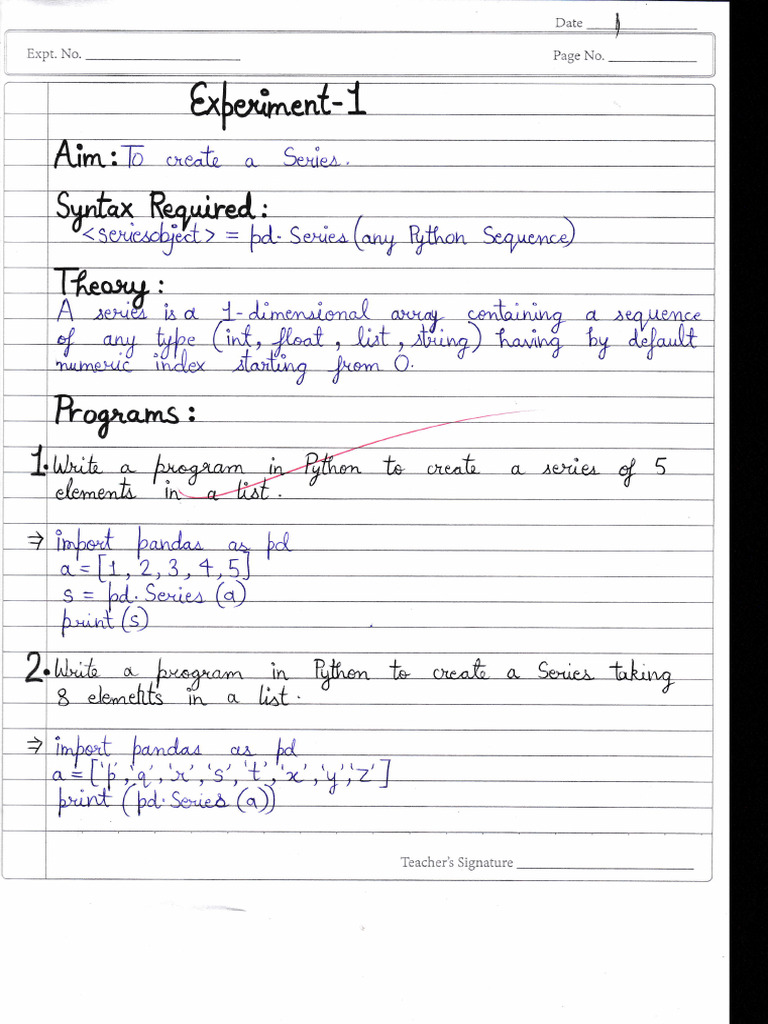 Date
Expt. No.
Page No.
Experiment-1
Aim: To create a Series.
Syntax Required:
<seriesobject> = pd.Series(any Python Sequence)
Theory:
A series is a 1-dimensional array containing a sequence
of any type (int, float, list, string) having by default
numeric index starting from 0.
Programs:
1. Write a program in Python to create a series of 5
elements in a list.
⇒ import pandas as pd
a = [1, 2, 3, 4, 5]
s = pd.Series (a)
print (s)
2. Write a program in Python to create a Series taking
8 elements in a list.
⇒ import pandas as pd
a = ['p', 'q', 'r', 's', 't', 'x', 'y', 'z']
print (pd.Series (a))
Teacher's Signature